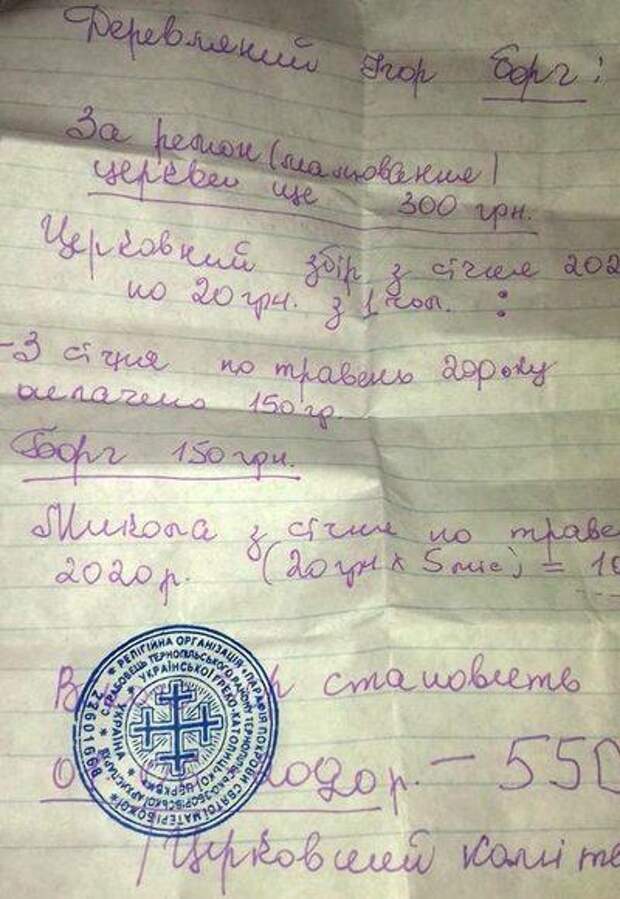 Деревляний Ігор Борг:
За ремон (малювання)
церкви ще 300 грн.
Церковний збір з січня 202
по 20 грн. з 1 чол. :
- З січня по травень 20 року
оплачено 150 гр.
Борг 150 грн.
Микола з січня по траве
2020 р. (20 грн х 5 міс) = 10
становить
2020 р. - 550
/Церковний коміте
РЕЛІГІЙНА ОРГАНІЗАЦІЯ "ПАРАФІЯ ПОКРОВИ СВЯТОЇ МАТЕРІ БОЖОЇ
УКРАЇНСЬКОЇ ГРЕКО-КАТОЛИЦЬКОЇ ЦЕРКВИ
УКРАЇНА